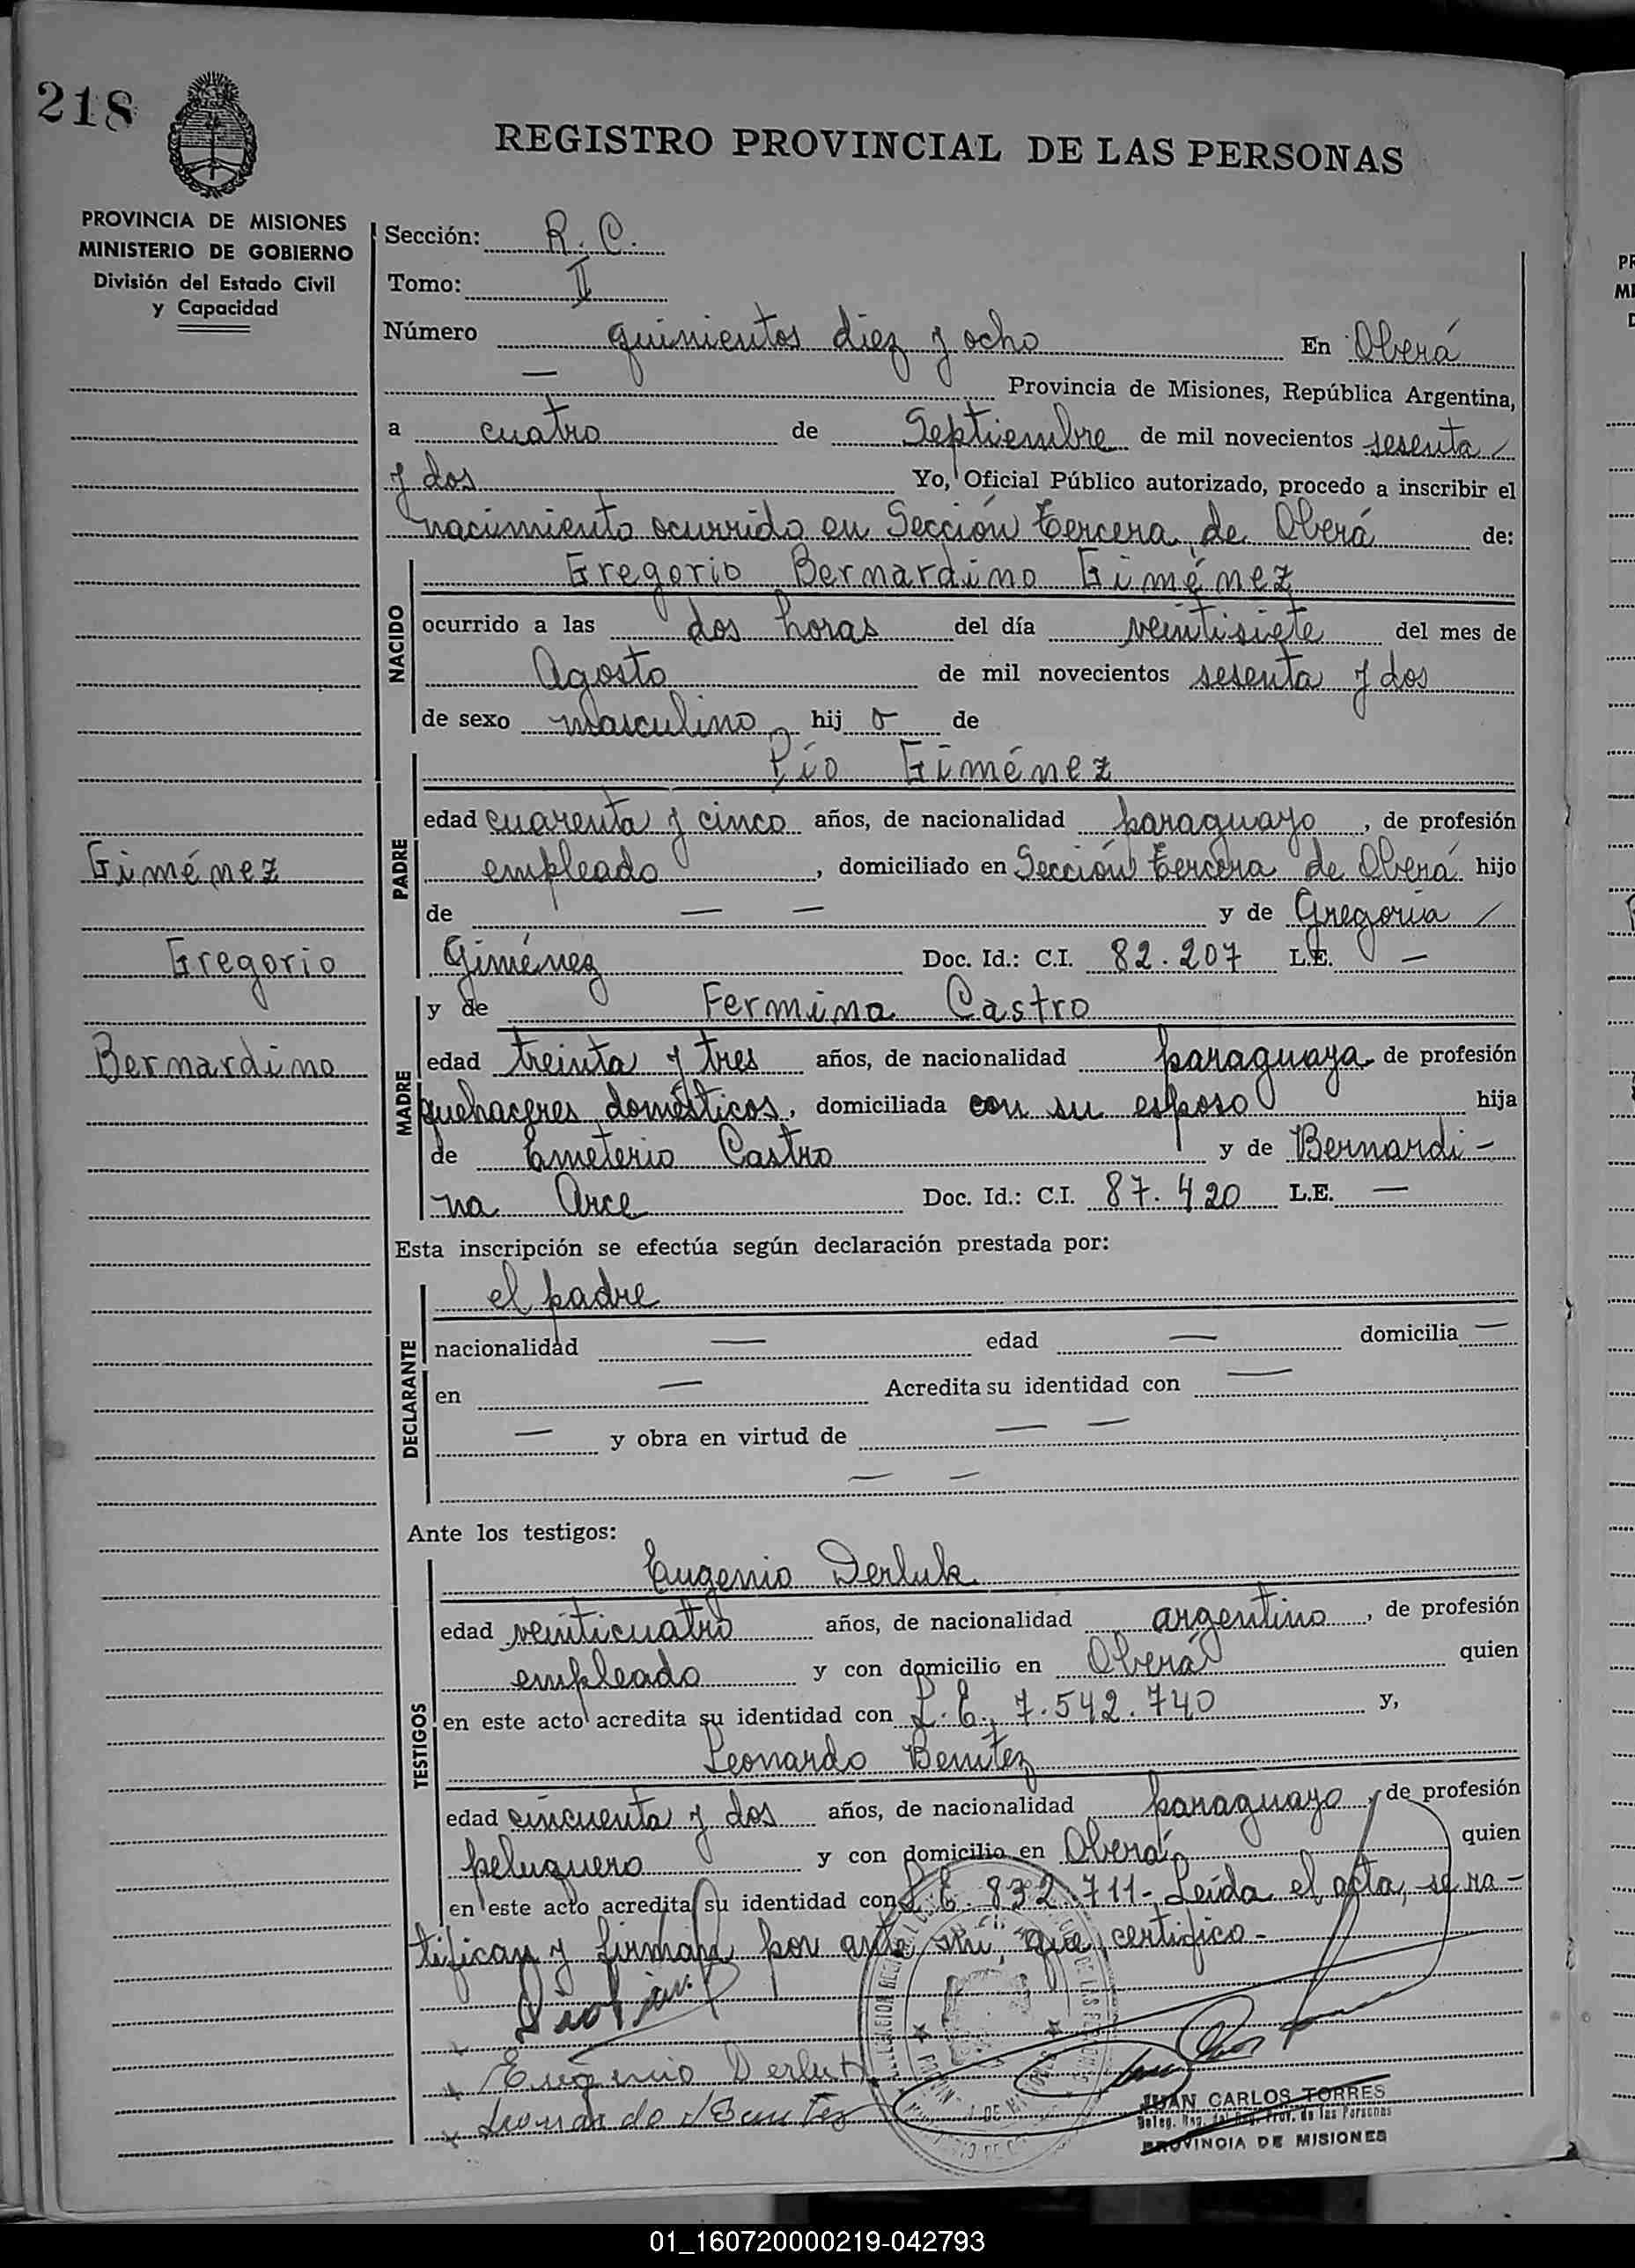 218
REGISTRO PROVINCIAL DE LAS PERSONAS
PROVINCIA DE MISIONES
MINISTERIO DE GOBIERNO
División del Estado Civil
y Capacidad
Sección: R. C.
Tomo: II
Número quinientos diez y ocho En Oberá
— Provincia de Misiones, República Argentina,
a cuatro de Septiembre de mil novecientos sesenta
y dos Yo, Oficial Público autorizado, procedo a inscribir el
nacimiento ocurrido en Sección tercera de Oberá de:
NACIDO
Gregorio Bernardino Giménez
ocurrido a las dos horas del día veintisiete del mes de
Agosto de mil novecientos sesenta y dos
de sexo masculino hij o de
PADRE
Pío Giménez
edad cuarenta y cinco años, de nacionalidad paraguayo, de profesión
empleado, domiciliado en Sección tercera de Oberá hijo
de — — y de Gregoria
Giménez Doc. Id.: C.I. 82.207 L.E. —
Giménez
Gregorio
Bernardino
MADRE
y de Fermina Castro
edad treinta y tres años, de nacionalidad paraguaya de profesión
quehaceres domésticos, domiciliada con su esposo hija
de Emeterio Castro y de Bernardi-
na Arce Doc. Id.: C.I. 87.420 L.E. —
Esta inscripción se efectúa según declaración prestada por:
DECLARANTE
el padre
nacionalidad — edad — domicilia —
en — Acredita su identidad con —
— y obra en virtud de — —
— —
Ante los testigos:
TESTIGOS
Eugenio Derluk
edad veinticuatro años, de nacionalidad argentino, de profesión
empleado y con domicilio en Oberá quien
en este acto acredita su identidad con L.E. 7.542.740 y,
Leonardo Benítez
edad cincuenta y dos años, de nacionalidad paraguayo, de profesión
peluquero y con domicilio en Oberá quien
en este acto acredita su identidad con L.E. 832.711- Leída el acta, se ra-
tifican y firman por ante mí, que certifico-
Eugenio Derluk
Leonardo Benitez
JUAN CARLOS TORRES
Deleg. Reg. del Reg. Prov. de las Personas
PROVINCIA DE MISIONES
01_160720000219-042793